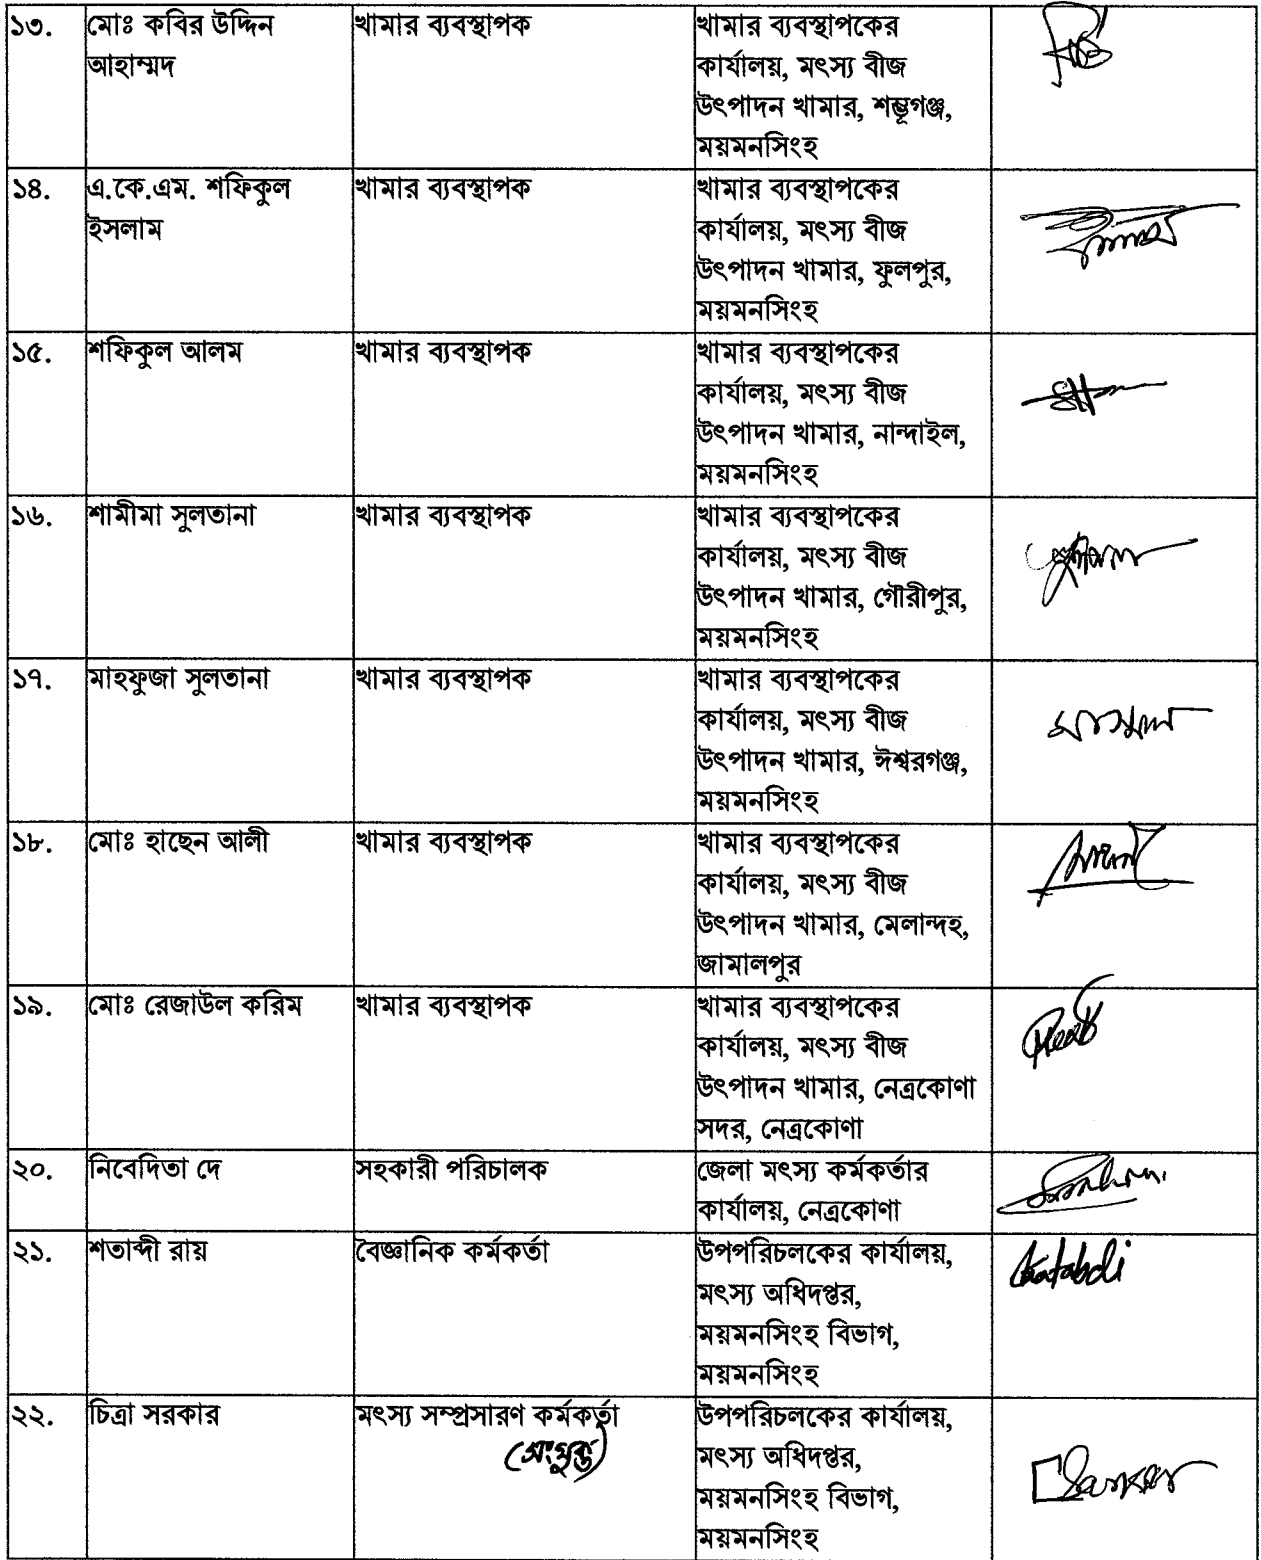 ১৩. মোঃ কবির উদ্দিন খামার ব্যবস্থাপক খামার ব্যবস্থাপকের
আহাম্মদ কার্যালয়, মৎস্য বীজ
উৎপাদন খামার, শম্ভূগঞ্জ,
ময়মনসিংহ
১৪. এ.কে.এম. শফিকুল খামার ব্যবস্থাপক খামার ব্যবস্থাপকের
ইসলাম কার্যালয়, মৎস্য বীজ
উৎপাদন খামার, ফুলপুর,
ময়মনসিংহ
১৫. শফিকুল আলম খামার ব্যবস্থাপক খামার ব্যবস্থাপকের
কার্যালয়, মৎস্য বীজ
উৎপাদন খামার, নান্দাইল,
ময়মনসিংহ
১৬. শামীমা সুলতানা খামার ব্যবস্থাপক খামার ব্যবস্থাপকের
কার্যালয়, মৎস্য বীজ
উৎপাদন খামার, গৌরীপুর,
ময়মনসিংহ
১৭. মাহফুজা সুলতানা খামার ব্যবস্থাপক খামার ব্যবস্থাপকের
কার্যালয়, মৎস্য বীজ
উৎপাদন খামার, ঈশ্বরগঞ্জ,
ময়মনসিংহ
১৮. মোঃ হাছেন আলী খামার ব্যবস্থাপক খামার ব্যবস্থাপকের
কার্যালয়, মৎস্য বীজ
উৎপাদন খামার, মেলান্দহ,
জামালপুর
১৯. মোঃ রেজাউল করিম খামার ব্যবস্থাপক খামার ব্যবস্থাপকের
কার্যালয়, মৎস্য বীজ
উৎপাদন খামার, নেত্রকোণা
সদর, নেত্রকোণা
২০. নিবেদিতা দে সহকারী পরিচালক জেলা মৎস্য কর্মকর্তার
কার্যালয়, নেত্রকোণা
২১. শতাব্দী রায় বৈজ্ঞানিক কর্মকর্তা উপপরিচলকের কার্যালয়,
মৎস্য অধিদপ্তর,
ময়মনসিংহ বিভাগ,
ময়মনসিংহ
২২. চিত্রা সরকার মৎস্য সম্প্রসারণ কর্মকর্তা উপপরিচলকের কার্যালয়,
(সংযুক্ত) মৎস্য অধিদপ্তর,
ময়মনসিংহ বিভাগ,
ময়মনসিংহ